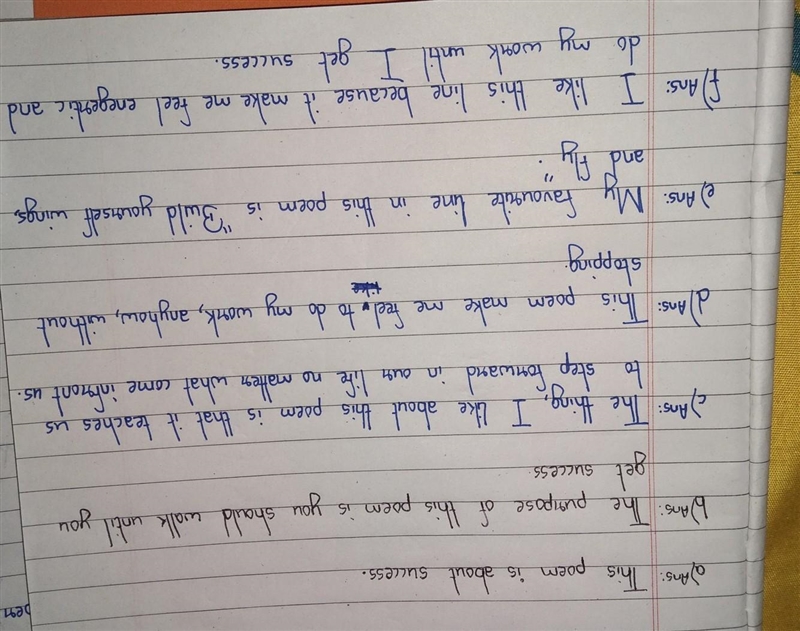 a) Ans: This poem is about success.
b) Ans: The purpose of this poem is you should walk until you
get success.
c) Ans: The thing, I like about this poem is that it teaches us
to step forward in our life no matter what come infront us.
d) Ans: This poem make me feel to do my work, anyhow, without
like
stopping.
e) Ans: My favourite line in this poem is "Build yourself wings,
and fly".
f) Ans: I like this line because it make me feel energestic and
do my work until I get success.